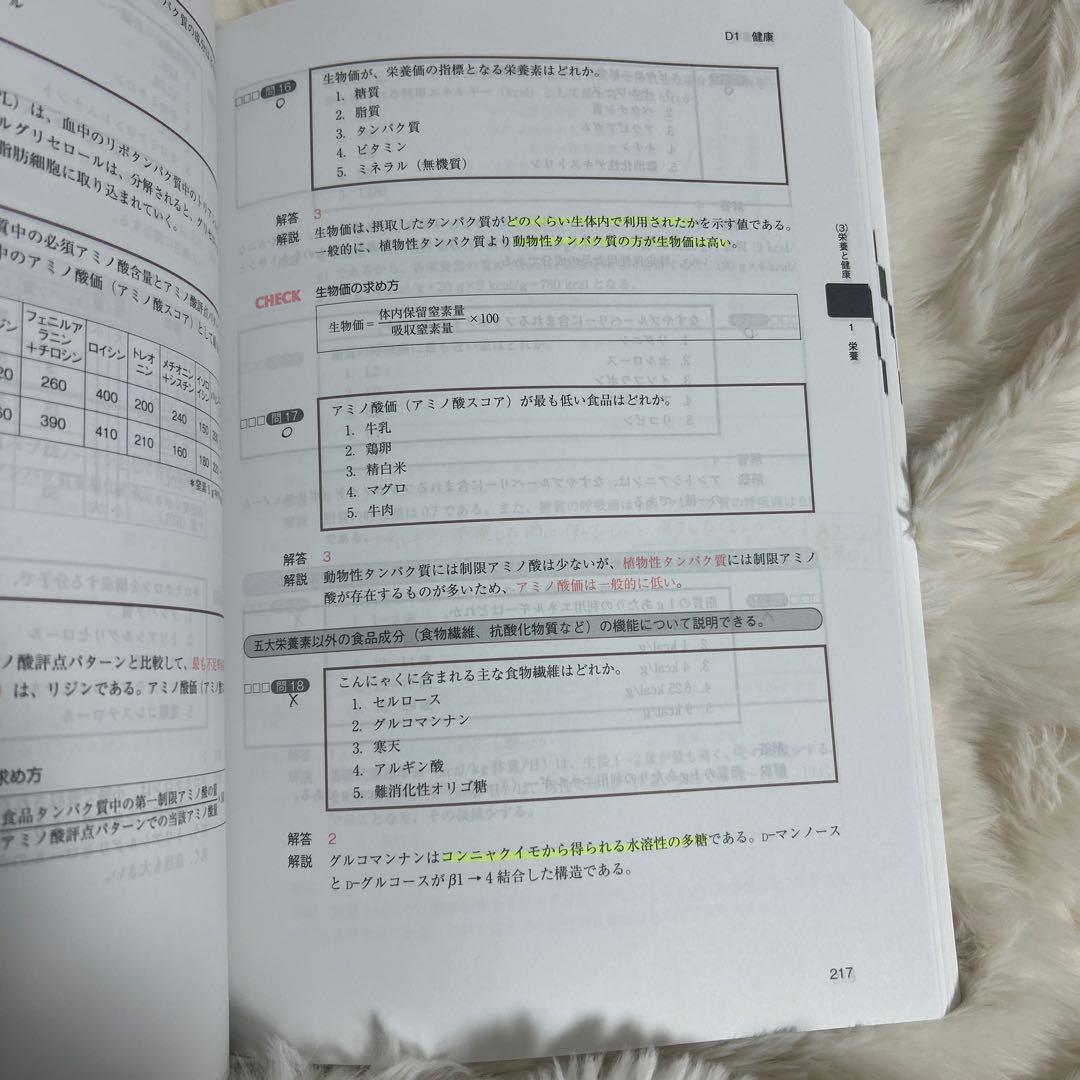 ル
パク質の成分は
PL）は、血中のリポタンパク質中のトリ
ルグリセロールは、分解されると、グリセ
脂肪細胞に取り込まれていく。
質中の必須アミノ酸含量とアミノ酸評点パター
中のアミノ酸価（アミノ酸スコア）として
フェニルアラニン＋チロシン ロイシン トレオニン メチオニン＋シスチン イソロイシン
20 260 400 200 240 150
60 390 410 210 160 180
＊窒素1g
ノ酸評点パターンと比較して、最も不足
は、リジンである。アミノ酸価（アミノ
求め方
食品タンパク質中の第一制限アミノ酸の量
アミノ酸評点パターンでの当該アミノ酸量
D1 健康
問16
生物価が、栄養価の指標となる栄養素はどれか。
1. 糖質
2. 脂質
3. タンパク質
4. ビタミン
5. ミネラル（無機質）
解答 3
解説 生物価は、摂取したタンパク質がどのくらい生体内で利用されたかを示す値である。
一般的に、植物性タンパク質より動物性タンパク質の方が生物価は高い。
CHECK 生物価の求め方
生物価＝体内保留窒素量/吸収窒素量×100
問17
アミノ酸価（アミノ酸スコア）が最も低い食品はどれか。
1. 牛乳
2. 鶏卵
3. 精白米
4. マグロ
5. 牛肉
解答 3
解説 動物性タンパク質には制限アミノ酸は少ないが、植物性タンパク質には制限アミノ
酸が存在するものが多いため、アミノ酸価は一般的に低い。
五大栄養素以外の食品成分（食物繊維、抗酸化物質など）の機能について説明できる。
問18
こんにゃくに含まれる主な食物繊維はどれか。
1. セルロース
2. グルコマンナン
3. 寒天
4. アルギン酸
5. 難消化性オリゴ糖
解答 2
解説 グルコマンナンはコンニャクイモから得られる水溶性の多糖である。D-マンノース
とD-グルコースがβ1→4結合した構造である。
(3)栄養と健康
1 栄養
217